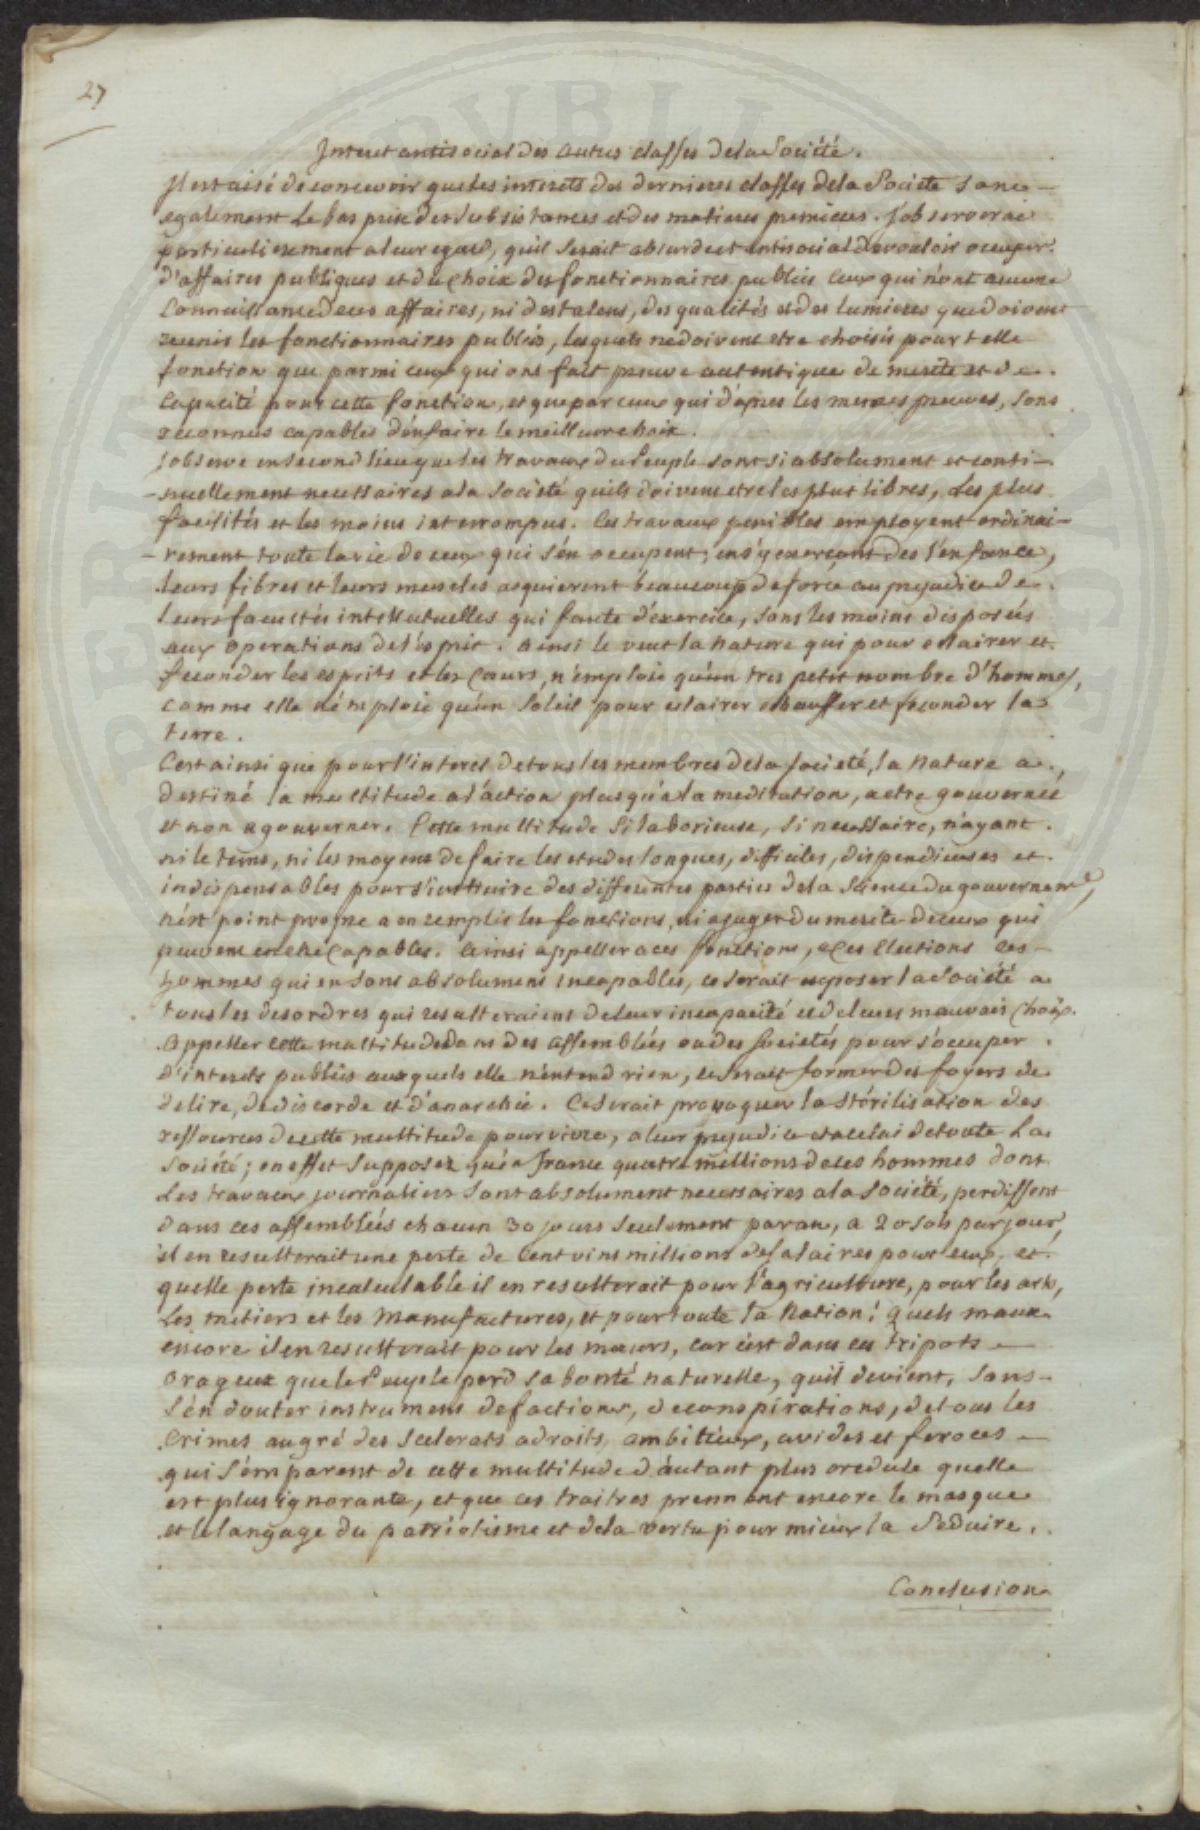 27
Interet antisocial des autres classes de la Société.
Il est aisé de concevoir que les interets des dernieres classes de la Societe sont
egalement le bas prix des subsistances et des matieres premieres. J'observerai
particulierement a leur egard, qu'il serait absurde et antisocial de vouloir occuper
d'affaires publiques et du choix des fonctionnaires publics ceux qui n'ont aucune
connaissance de ces affaires, ni des talens, des qualités et des lumieres que doivent
reunir les fonctionnaires publics, lesquels ne doivent etre choisis pour telle
fonction que parmi ceux qui ont fait preuve autentique de merite et de
capacité pour cette fonction, et que par ceux qui d'apres les memes preuves, sont
reconnus capables d'en faire le meilleur choix.
J'observe en second lieu que les travaux du Peuple sont si absolument et conti-
-nuellement necessaires a la Société qu'ils doivent etre les plus libres, les plus
facilités et les moins interrompus. Ces travaux penibles employent ordinai-
-rement toute la vie de ceux qui s'en occupent; en s'y exerçant des l'enfance,
leurs fibres et leurs muscles acquierent beaucoup de force au prejudice de
leurs facultés intellectuelles qui faute d'exercice, sont les moins disposés
aux operations de l'esprit. Ainsi le veut la nature qui pour eclairer et
feconder les esprits et les coeurs, n'emploie qu'un tres petit nombre d'hommes,
comme elle n'emploie qu'un Soleil pour eclairer echauffer et feconder la
terre.
C'est ainsi que pour l'interet de tous les membres de la societé, la nature a
destiné la multitude a l'action plus qu'a la meditation, a etre gouvernée
et non a gouverner. Cette multitude si laborieuse, si necessaire, n'ayant
ni le tems, ni les moyens de faire les etudes longues, difficiles, dispendieuses et
indispensables pour s'instruire des differentes parties de la science du gouvernemt,
n'est point propre a en remplir les fonctions, ni a juger du merite de ceux qui
peuvent en etre capables. Ainsi appeller a ces fonctions, a ces Elections des
hommes qui en sont absolument incapables, ce serait exposer la Société a
tous les desordres qui resulteraient de leur incapacité et de leurs mauvais choix.
Appeller cette multitude dans des assemblées ou des Societés pour s'occuper
d'interets publics auxquels elle n'entend rien, ce serait former des foyers de
delire, de discorde et d'anarchie. Ce serait provoquer la stérilisation des
ressources de cette multitude pour vivre, a leur prejudice et a celui de toute la
Société; en effet supposez qu'en France quatre millions de ces hommes dont
les travaux journaliers sont absolument necessaires a la Société, perdissent
dans ces assemblées chacun 30 jours seulement par an, a 20 sols par jour,
il en resulterait une perte de Cent vint millions de salaires pour eux, et
quelle perte incalculable il en resulterait pour l'agriculture, pour les arts,
les metiers et les manufactures, et pour toute la Nation! quels maux
encore il en resulterait pour les moeurs, car c'est dans ces tripots
orageux que le Peuple perd sa bonté naturelle, qu'il devient, sans
s'en douter instrument de factions, de conspirations, de tous les
crimes au gré des scelerats adroits, ambitieux, avides et feroces
qui s'emparent de cette multitude d'autant plus credule quelle
est plus ignorante, et que ces traitres prennent encore le masque
et le langage du patriotisme et de la vertu pour mieux la Seduire.
Conclusion